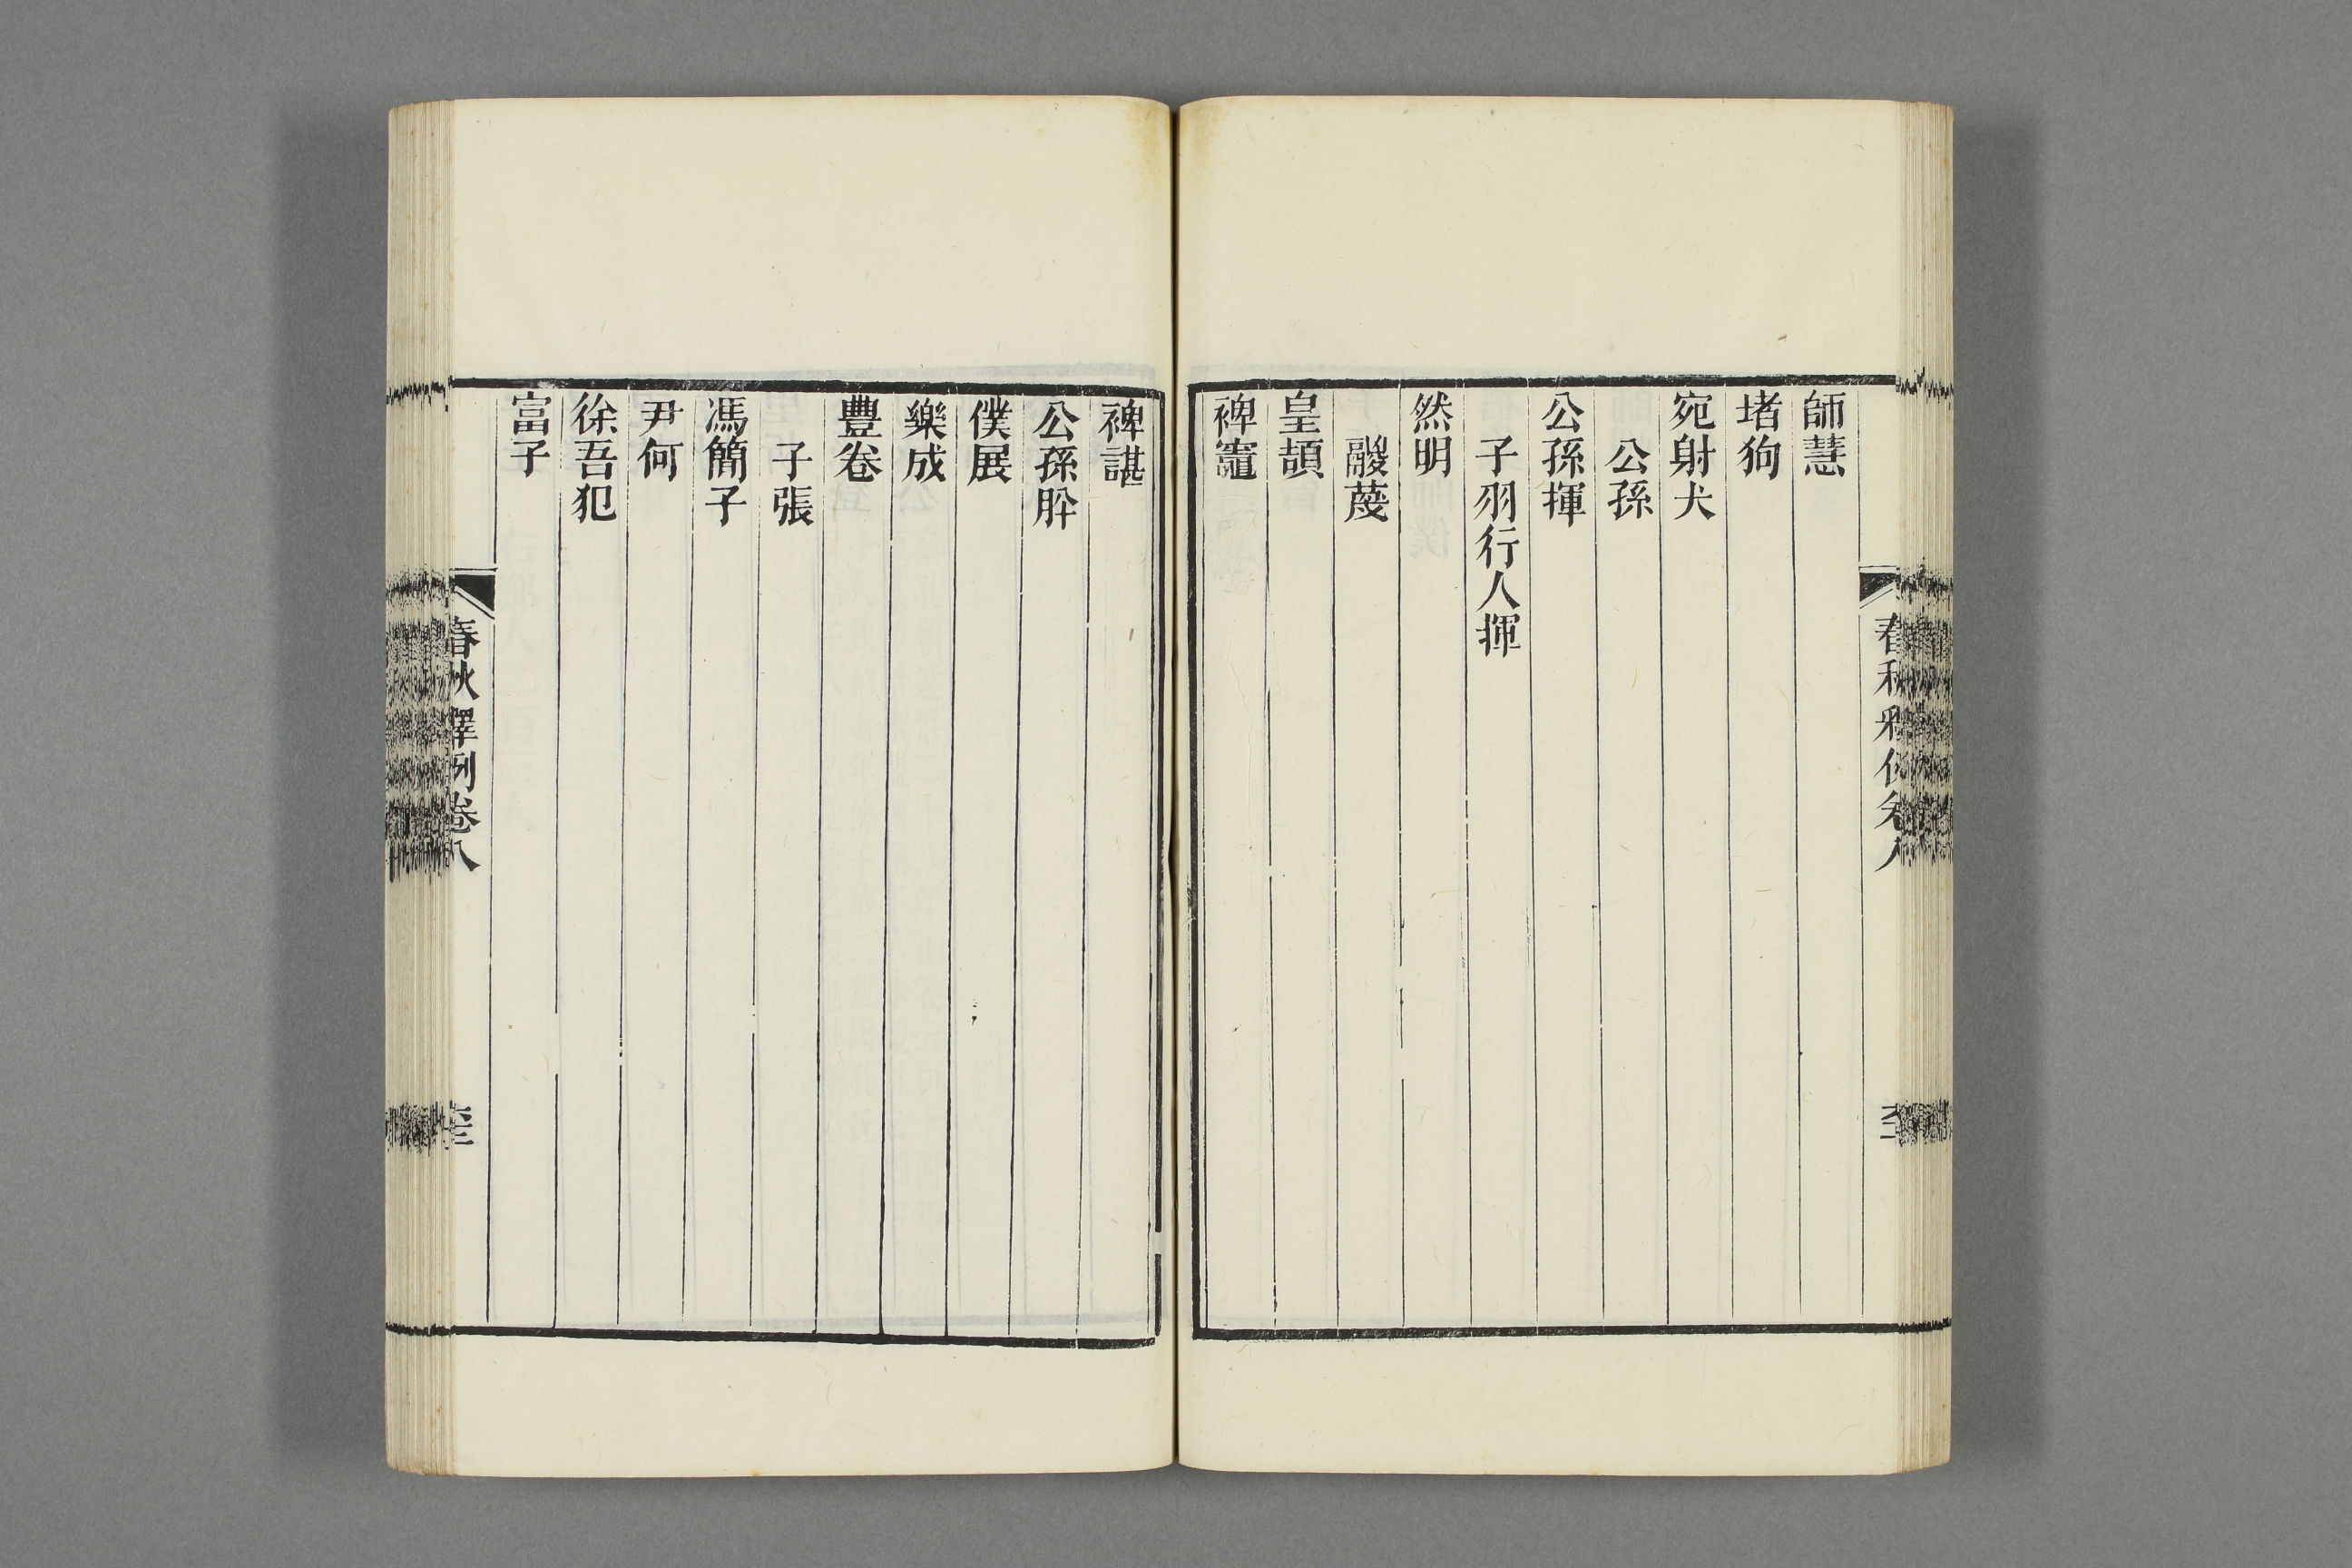 師慧
堵狗
宛射犬
公孫
公孫揮
子羽行人揮
然明
鬷蔑
皇頡
裨竈
裨諶
公孫肸
僕展
樂成
豐卷
子張
馮簡子
尹何
徐吾犯
富子
春秋釋例卷八